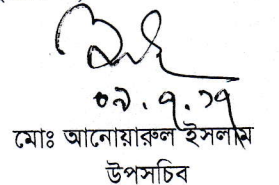 ০৯.৭.১৭
মোঃ আনোয়ারুল ইসলাম
উপসচিব